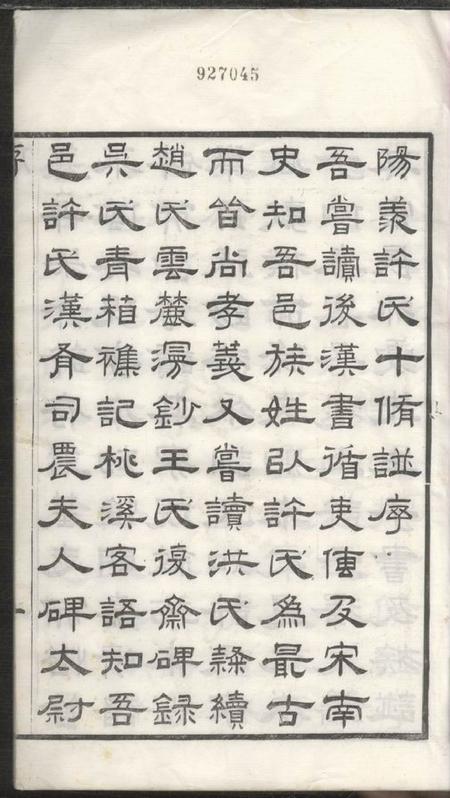 927045
陽羨許氏十脩譜序
吾嘗讀後漢書循吏傳及宋南
史知吾邑族姓以許氏為最古
而皆尚孝義又嘗讀洪氏隸續
趙氏雲麓漫鈔王氏復齋碑錄
吳氏青箱襍記桃溪客語知吾
邑許氏漢有司農夫人碑太尉
序
一